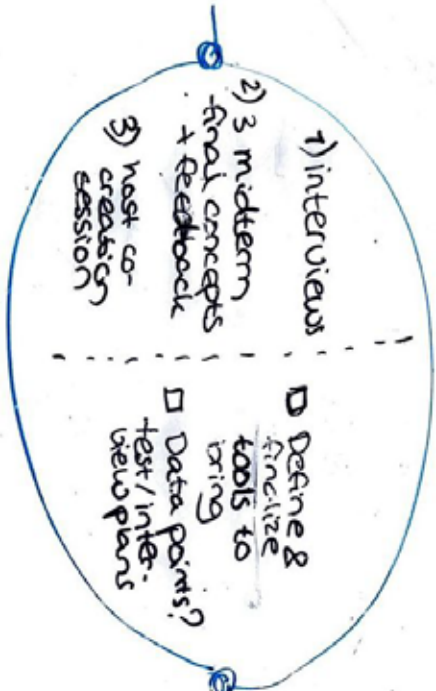 1) interviews
2) 3 midterm
-final concepts
+ feedback
3) host co-
creation
session
□ Define &
finalize
tools to
bring
□ Data points?
test/inter-
view plans